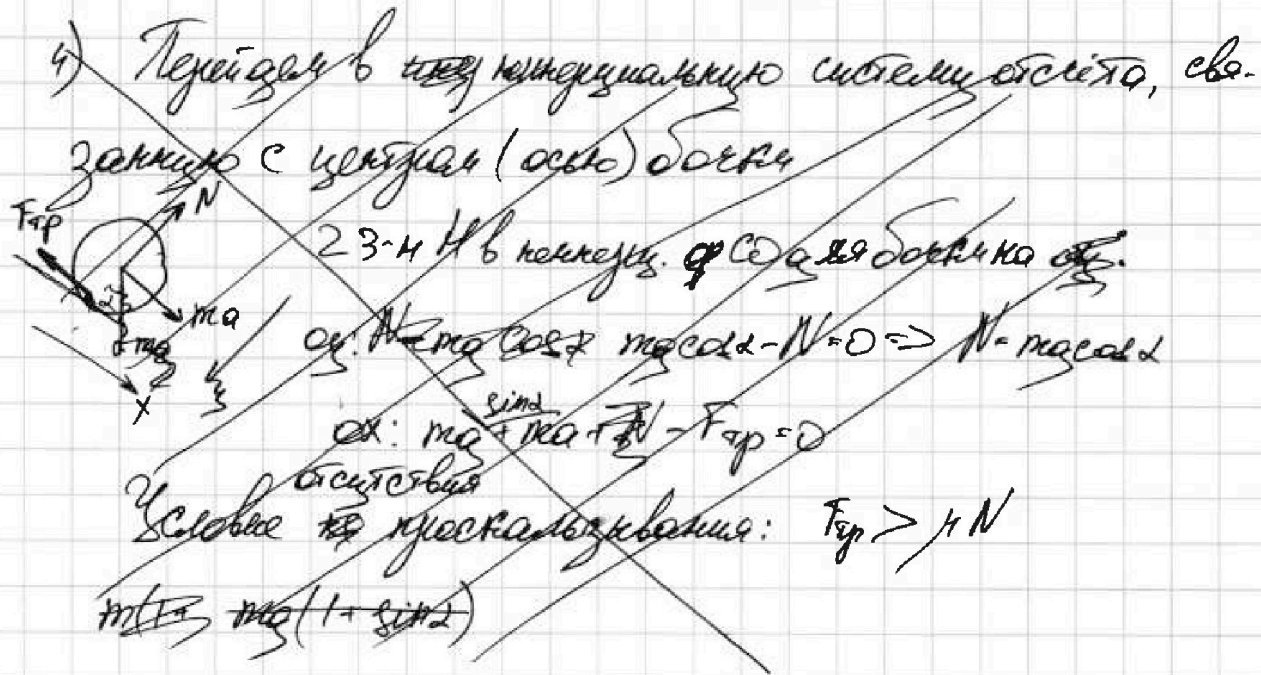 4) Перейдем в неинерциальную систему отсчёта, свя-
занную с центром (осью) бочки
2 З-н Н в неинерц. СО для бочки на
Fтр
N
ma
mg
x
α
oy: mg cosα - N = 0 => N = mg cosα
ox: mg sinα + ma - Fтр = 0
Условие отсутствия проскальзывания: Fтр > μN
mg(1 + sinα)